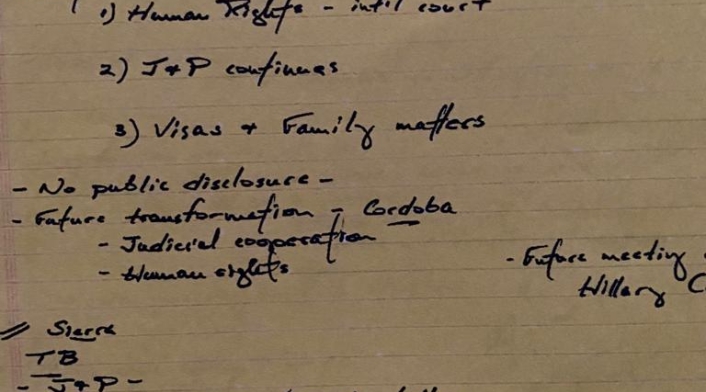 1) Human Rights - int'l court
2) J + P continues
3) Visas + Family matters
- No public disclosure -
- Future transformation - Cordoba
- Judicial cooperation
- Human rights
- Future meeting
Hillary C
// Sierra
TB
- J + P -